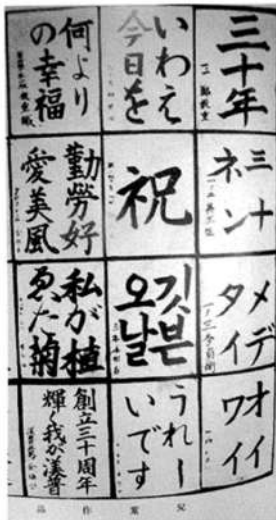 三十年
三十
ネン
メデ
タイ
オイ
ワイ
いわえ
今日を
祝
깃븐
오날
うれし
いです
何より
の幸福
勤勞好
愛美風
私が植
ゑた菊
創立三十周年
輝く我が漢普
兒童作品